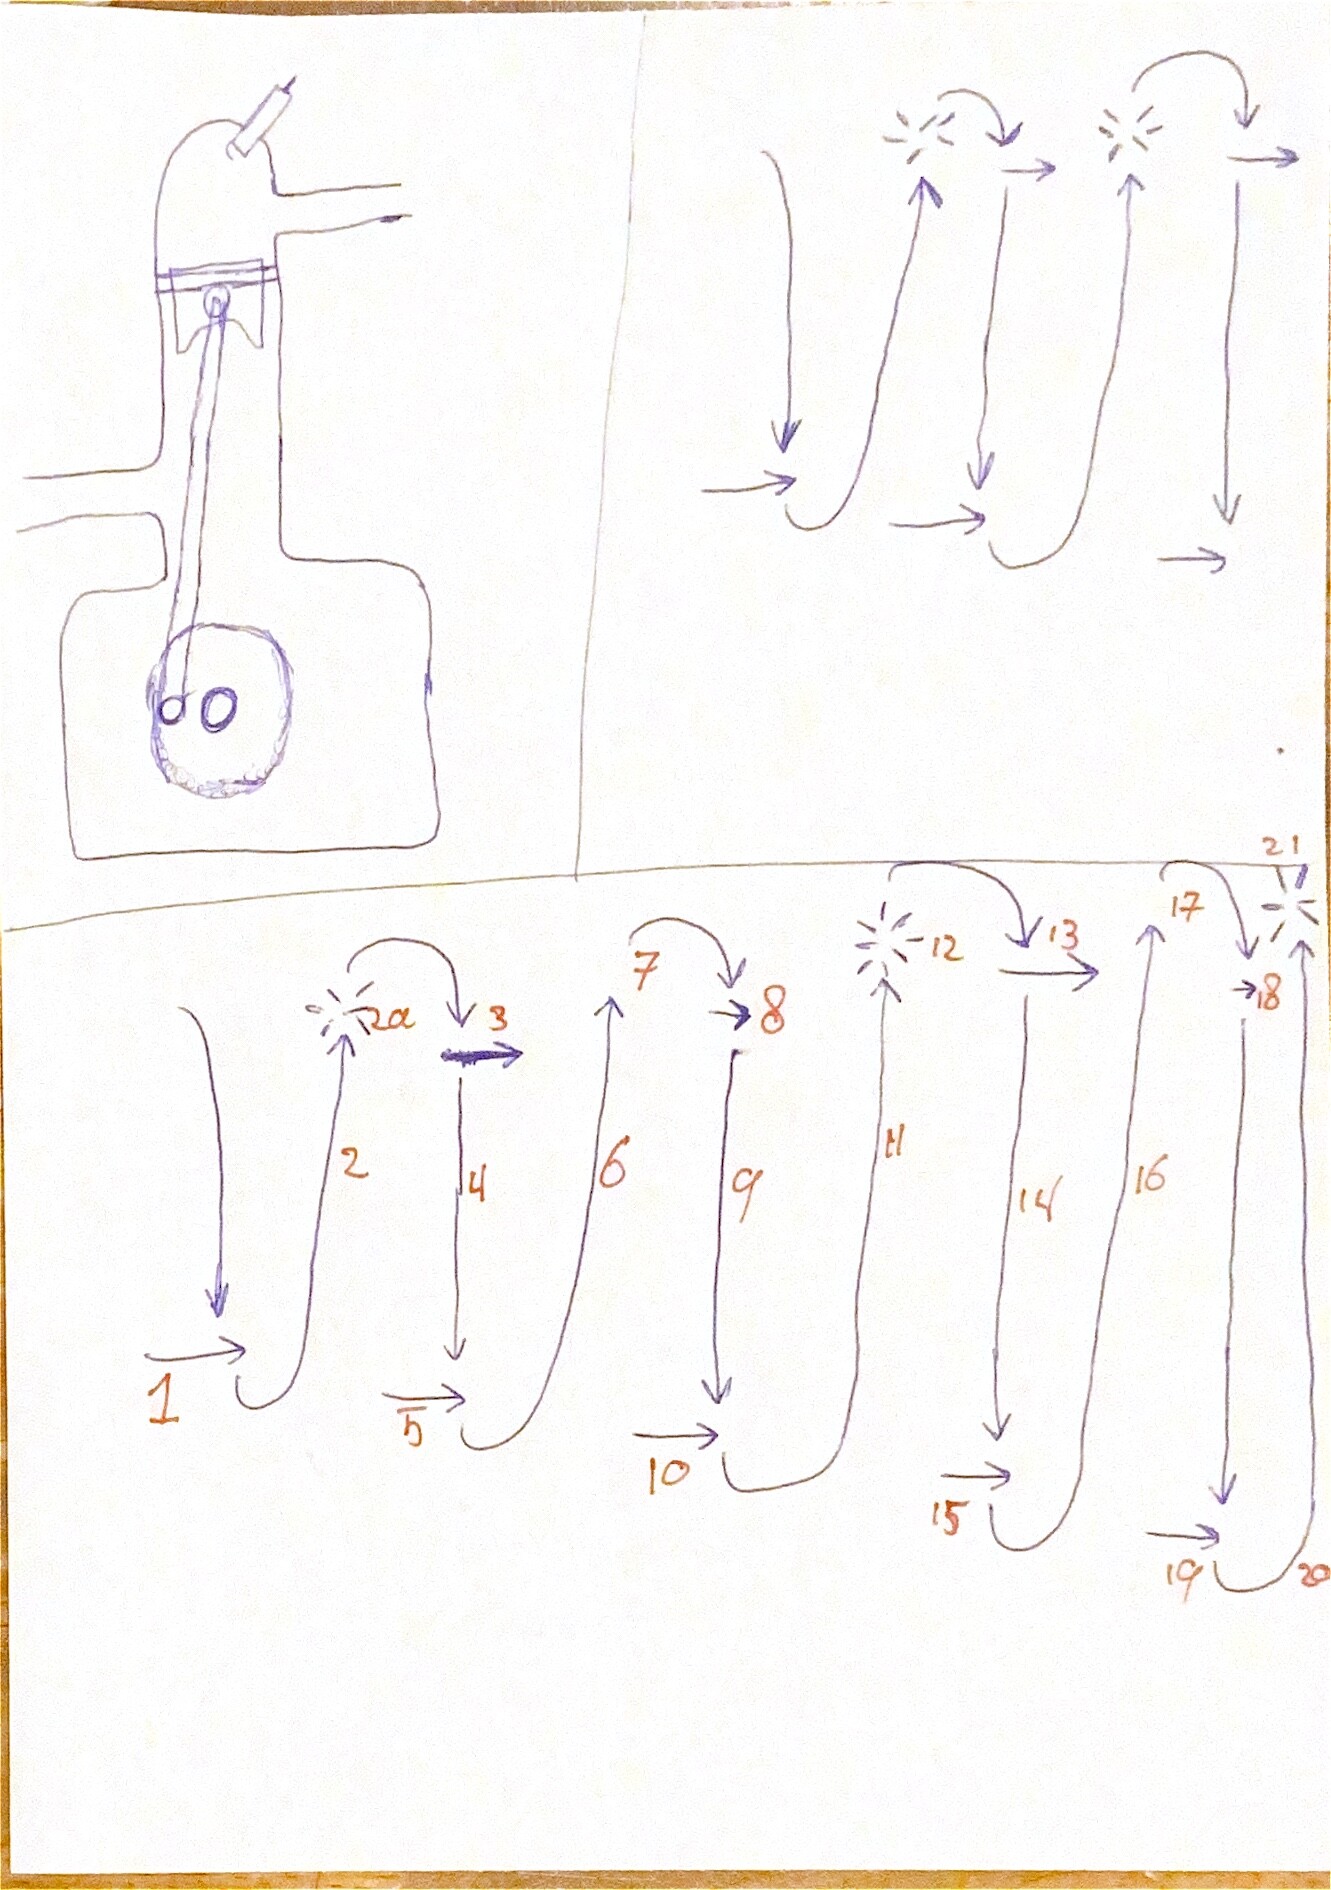 21
17
12
13
7
2a
3
8
18
2
4
6
9
11
14
16
1
5
10
15
19
20